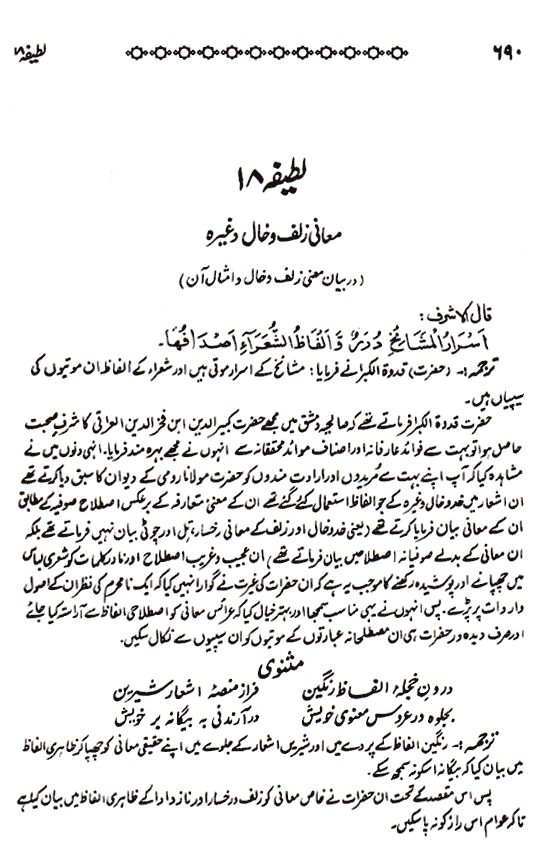 ۶۹۰ لطیفہ ۱۸
لطیفہ ۱۸
معانی زلف و خال وغیرہ
(در بیان معنی زلف و خال و امثال آن)
قال الاشرف:
اَسْرَارُ الْمَشَائِخِ دُرَرٌ وَّ اَلْفَاظُ الشُّعَرَآءِ اَصْدَافُهَا۔
ترجمہ:۔ (حضرت) قدوۃ الکبرا نے فرمایا: مشائخ کے اسرار موتی ہیں اور شعراء کے الفاظ ان موتیوں کی
سیپیاں ہیں۔
حضرت قدوۃ الکبرا فرماتے تھے کہ صالحیہ دمشق میں مجھے حضرت کبیر الدین ابن فخر الدین العراقی کا شرف صحبت
حاصل ہوا تو بہت سے فوائد عارفانہ اور اصناف موائد محققانہ سے انہوں نے مجھے بہرہ مند فرمایا۔ انہی دنوں میں نے
مشاہدہ کیا کہ آپ اپنے بہت سے مریدوں اور ارادت مندوں کو حضرت مولانا رومی کے دیوان کا سبق دیا کرتے تھے
ان اشعار میں خد و خال وغیرہ کے جو الفاظ استعمال کئے گئے تھے ان کے معنی متعارفہ کے برعکس اصطلاح صوفیہ کے مطابق
ان کے معانی بیان فرمایا کرتے تھے (یعنی خد و خال اور زلف کے معانی رخسار، تل اور چوٹی بیان نہیں فرماتے تھے بلکہ
ان معانی کے بدلے صوفیانہ اصطلاحیں بیان فرماتے تھے) ان عجیب و غریب اصطلاح اور نادر کلمات کو شعری لباس
میں چھپانے اور پوشیدہ رکھنے کا موجب یہ ہے کہ ان حضرات کی غیرت نے گوارا نہیں کیا کہ ایک نامحرم کی نظر ان کے اصول
واردات پر پڑے۔ پس انہوں نے یہی مناسب سمجھا اور بہتر خیال کیا کہ عرائس معانی کو اصطلاحی الفاظ سے آراستہ کیا جائے
اور صرف دیدہ ور حضرات ہی ان مصطلحانہ عبارتوں کے موتیوں کو ان سیپیوں سے نکال سکیں۔
مثنوی
درون حجلۂ الفاظ رنگین فراز منصۂ اشعار شیرین
بجلوہ در عروس معنوی خویش در آرندنی بہ بیگانہ بر خویش
ترجمہ:۔ رنگین الفاظ کے پردے میں اور شیریں اشعار کے جلوے میں اپنے حقیقی معانی کو چھپا کر ظاہری الفاظ
میں بیان کیا کہ بیگانہ اسکو نہ سمجھ سکے۔
پس اس مقصد کے تحت ان حضرات نے خاص معانی کو زلف و رخسار اور ناز و ادا کے ظاہری الفاظ میں بیان کیا ہے
تاکہ عوام اس راز کو نہ پا سکیں۔